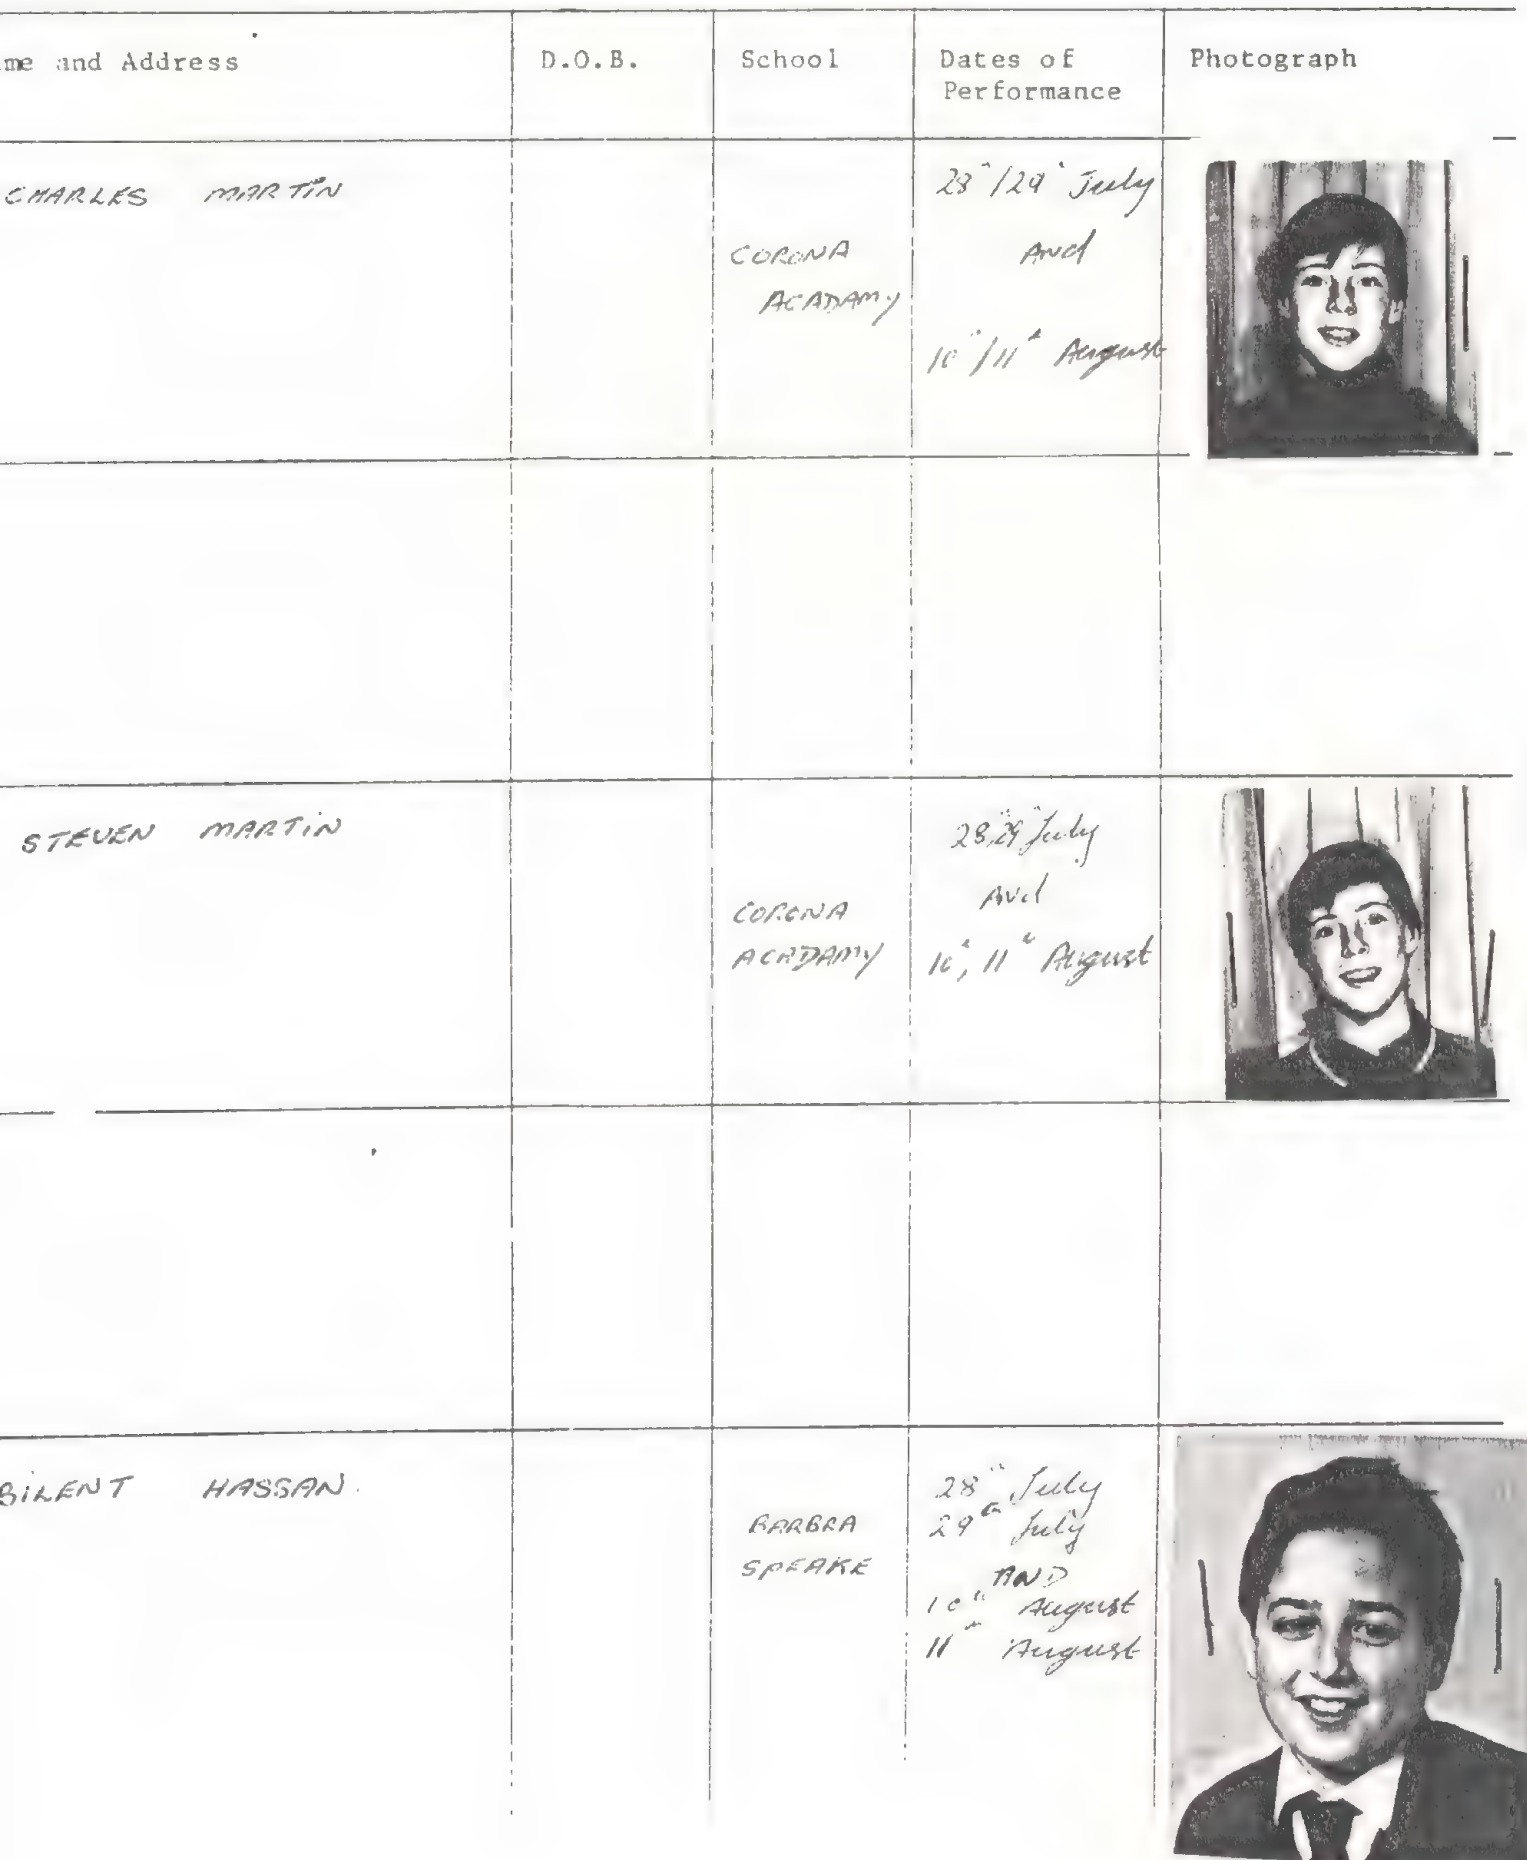 me and Address D.O.B. School Dates of Performance Photograph
CHARLES MARTIN
CORONA
ACADAMY
28th/29th July
And
10th/11th August
STEVEN MARTIN
CORONA
ACADAMY
28th, 29th July
And
10th, 11th August
BILENT HASSAN.
BARBRA
SPEAKE
28th July
29th July
AND
10th August
11th August